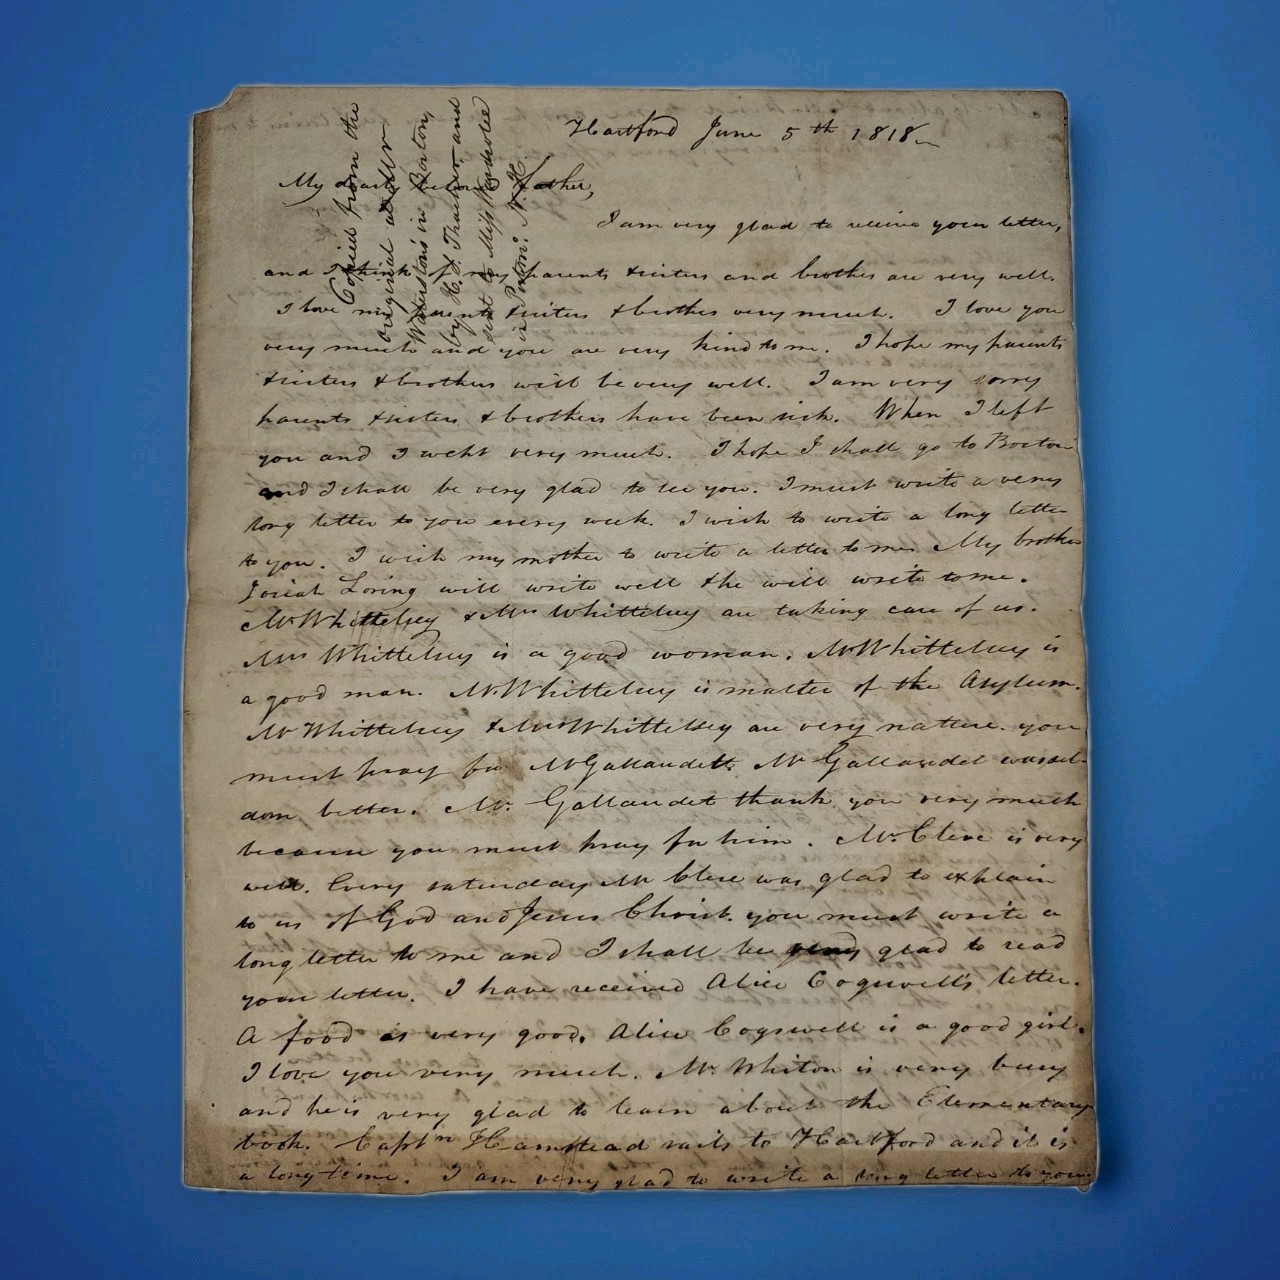 Hartford June 5th 1818
My dear beloved father,
I am very glad to receive your letter,
and I think of my parents & sisters and brother are very well.
I love my parents & sisters & brother very much. I love you
very much and you are very kind to me. I hope my parents
& sisters & brothers will be very well. I am very sorry
parents & sisters & brothers have been sick. When I left
you and I wept very much. I hope I shall go to Boston
and I shall be very glad to see you. I must write a very
long letter to you every week. I wish to write a long letter
to you. I wish my mother to write a letter to me. My brother
Josiah Loring will write well & he will write to me.
Mr Whittelsey & Mrs Whittelsey are taking care of us.
Mrs Whittelsey is a good woman. Mr Whittelsey is
a good man. Mr Whittelsey is master of the Asylum.
Mr Whittelsey & Mrs Whittelsey are very nature. you
must pray for Mr Gallaudett. Mr Gallaudet was sel-
dom better. Mr. Gallaudet thank you very much
because you must pray for him. Mr. Clerc is very
well. Every saturday Mr Clerc was glad to explain
to us of God and Jesus Christ. you must write a
long letter to me and I shall be very glad to read
your letter. I have received Alice Cogswell's letter.
A food is very good. Alice Cogswell is a good girl.
I love you very much. Mr. Whiton is very busy
and he is very glad to learn about the Elementary
book. Captn Hamstead sails to Hartford and it is
a long time. I am very glad to write a long letter to you
Copied from the
original at Mr
Waterston's in Boston,
by H. S. Thacher and
sent to Miss
in Portsmo. N.H.